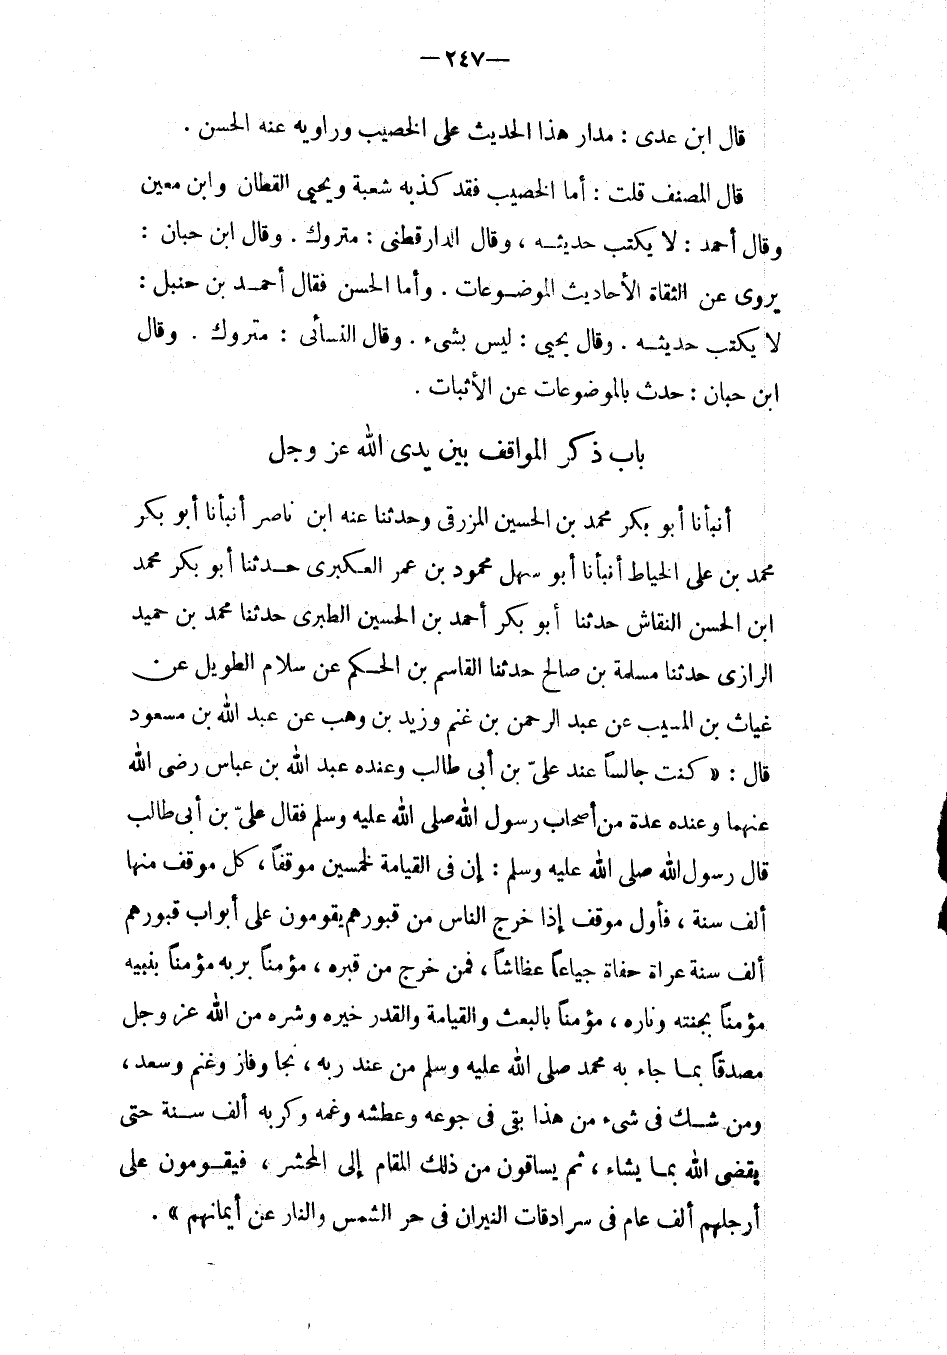 —٢٤٧—
قال ابن عدى : مدار هذا الحديث على الخصيب وراويه عنه الحسن .
قال المصنف قلت : أما الخصيب فقد كذبه شعبة ويحيى القطان وابن معين
وقال أحمد : لا يكتب حديثه ، وقال الدارقطنى : متروك . وقال ابن حبان :
يروى عن الثقاة الأحاديث الموضوعات . وأما الحسن فقال أحمد بن حنبل :
لا يكتب حديثه . وقال يحيى : ليس بشىء . وقال النسأئى : متروك . وقال
ابن حبان : حدث بالموضوعات عن الأثبات .
باب ذكر المواقف بين يدى الله عز وجل
أنبأنا أبو بكر محمد بن الحسين المزرقى وحدثنا عنه ابن ناصر أنبأنا أبو بكر
محمد بن على الخياط أنبأنا أبو سهل محمود بن عمر العكبرى حدثنا أبو بكر محمد
ابن الحسن النقاش حدثنا أبو بكر أحمد بن الحسين الطبرى حدثنا محمد بن حميد
الرازى حدثنا مسلمة بن صالح حدثنا القاسم بن الحكم عن سلام الطويل عن
غياث بن المسيب عن عبد الرحمن بن غنم وزيد بن وهب عن عبد الله بن مسعود
قال : « كنت جالساً عند علىّ بن أبى طالب وعنده عبد الله بن عباس رضى الله
عنهما وعنده عدة من أصحاب رسول الله صلى الله عليه وسلم فقال علىّ بن أبى طالب
قال رسول الله صلى الله عليه وسلم : إن فى القيامة لخمسين موقفاً ، كل موقف منها
ألف سنة ، فأول موقف إذا خرج الناس من قبورهم يقومون على أبواب قبورهم
ألف سنة عراة حفاة جياعاً عظاشاً ، فمن خرج من قبره ، مؤمناً بربه مؤمناً بنبيه
مؤمناً بجنته وناره ، مؤمناً بالبعث والقيامة والقدر خيره وشره من الله عز وجل
مصدقاً بما جاء به محمد صلى الله عليه وسلم من عند ربه ، نجا وفاز وغنم وسعد ،
ومن شك فى شىء من هذا بقى فى جوعه وعطشه وغمه وكربه ألف سنة حتى
يقضى الله بما يشاء ، ثم يساقون من ذلك المقام إلى المحشر ، فيقومون على
أرجلهم ألف عام فى سرادقات النيران فى حر الشمس والنار عن أيمانهم » .